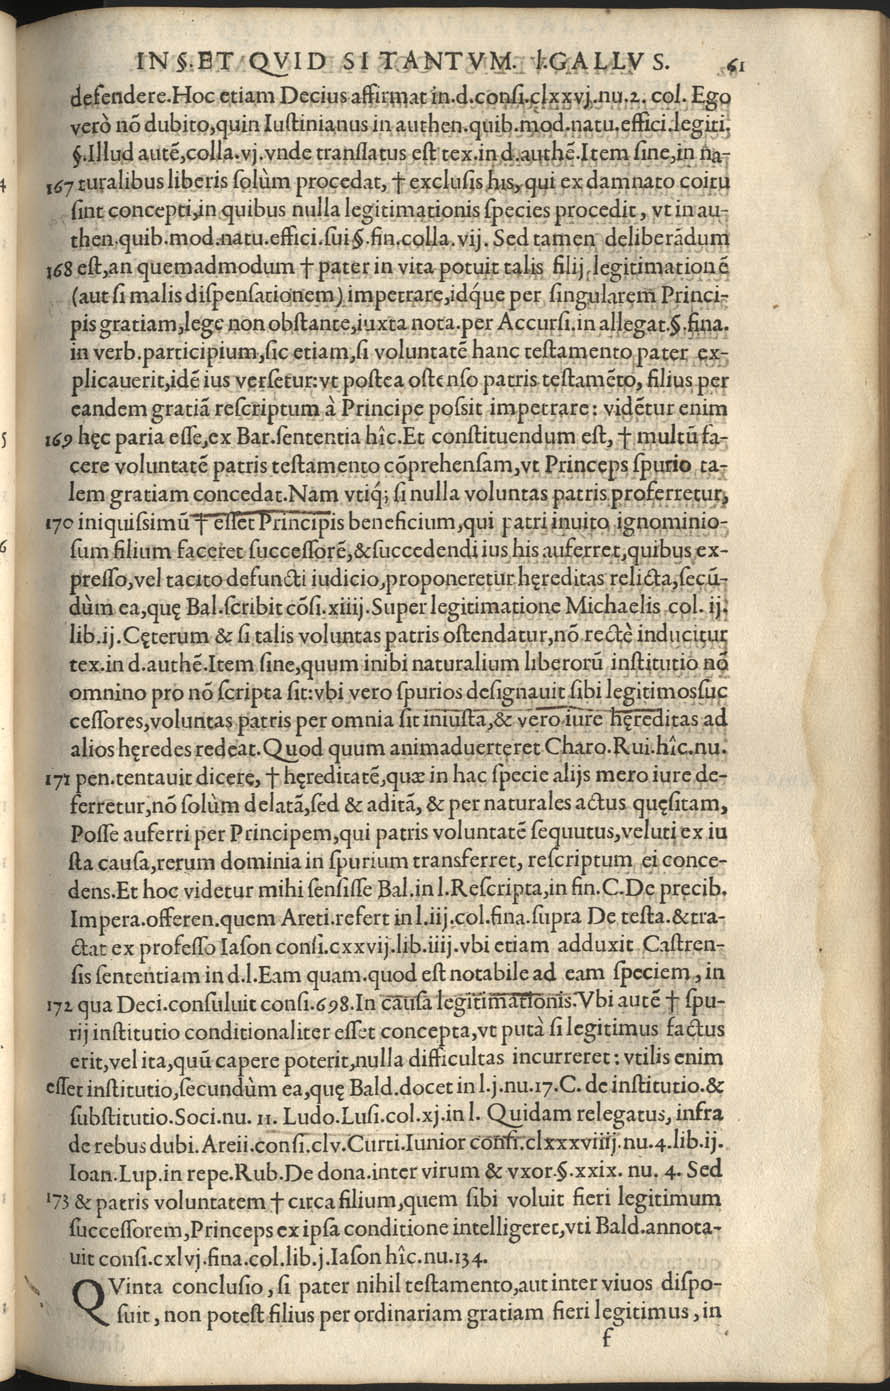 IN §. ET QVID SI TANTVM. l. GALLVS. 61
defendere.Hoc etiam Decius affirmat in.d.consi.clxxvj.nu.2. col. Ego
verò nõ dubito,quin Iustinianus in authen.quib.mod.natu.effici.legiti.
§.Illud autẽ,colla.vj.vnde translatus est tex.in d.authẽ.Item sine,in na-
167 turalibus liberis solùm procedat, † exclusis his, qui ex damnato coitu
sint concepti,in quibus nulla legitimationis species procedit, vt in au-
then.quib.mod.natu.effici.sui §.fin.colla.vij. Sed tamen deliberãdum
168 est,an quemadmodum † pater in vita potuit talis filij legitimationẽ
(aut si malis dispensationem) impetrare,idq́ue per singularem Princi-
pis gratiam,lege non obstante,iuxta nota.per Accursi.in allegat.§.fina.
in verb.participium,sic etiam,si voluntatẽ hanc testamento pater ex-
plicauerit,idẽ ius versetur:vt postea ostenso patris testamẽto, filius per
eandem gratiã rescriptum à Principe possit impetrare: vidẽtur enim
169 hęc paria esse,ex Bar.sententia hîc.Et constituendum est, † multũ fa-
cere voluntatẽ patris testamento cõprehensam,vt Princeps spurio ta-
lem gratiam concedat.Nam vtiq́; si nulla voluntas patris proferretur,
170 iniquissimũ † esset Principis beneficium,qui patri inuito ignominio-
sum filium faceret successorẽ,&succedendi ius his auferret,quibus ex-
presso,vel tacito defuncti iudicio,proponeretur hęreditas relicta,secũ-
dùm ea,quę Bal.scribit cõsi.xiiij.Super legitimatione Michaelis col. ij.
lib.ij.Cęterum & si talis voluntas patris ostendatur,nõ rectè inducitur
tex.in d.authẽ.Item sine,quum inibi naturalium liberorũ institutio nõ
omnino pro nõ scripta sit:vbi vero spurios designauit sibi legitimos suc
cessores,voluntas patris per omnia sit iniusta,& vero iure hęreditas ad
alios hęredes redeat.Quod quum animaduerteret Charo.Rui.hîc.nu.
171 pen.tentauit dicere, † hęreditatẽ,quæ in hac specie alijs mero iure de-
ferretur,nõ solùm delatã,sed & aditã, & per naturales actus quęsitam,
Posse auferri per Principem,qui patris voluntatẽ sequutus,veluti ex iu
sta causa,rerum dominia in spurium transferret, rescriptum ei conce-
dens.Et hoc videtur mihi sensisse Bal.in l.Rescripta,in fin.C.De pręcib.
Impera.offeren.quem Areti.refert in l.iij.col.fina.supra De testa.&tra-
ctat ex professo Iason consi.cxxvij.lib.iiij.vbi etiam adduxit Castren-
sis sententiam in d.l.Eam quam.quod est notabile ad eam speciem, in
172 qua Deci.consuluit consi.698.In causa legitimationis.Vbi autẽ † spu-
rij institutio conditionaliter esset concepta,vt putà si legitimus factus
erit,vel ita,quũ capere poterit,nulla difficultas incurreret: vtilis enim
esset institutio,secundùm ea,quę Bald.docet in l.j.nu.17.C. de institutio.&
substitutio.Soci.nu. 11. Ludo.Lusi.col.xj.in l. Quidam relegatus, infra
de rebus dubi.Areii.consi.clv.Curti.Iunior consi.clxxxviiij.nu.4.lib.ij.
Ioan.Lup.in repe.Rub.De dona.inter virum & vxor.§.xxix. nu. 4. Sed
173 & patris voluntatem † circa filium,quem sibi voluit fieri legitimum
successorem,Princeps ex ipsa conditione intelligeret,vti Bald.annota-
uit consi.cxlvj.fina.col.lib.j.Iason hîc.nu.134.
QVinta conclusio, si pater nihil testamento,aut inter viuos dispo-
suit, non potest filius per ordinariam gratiam fieri legitimus, in
f